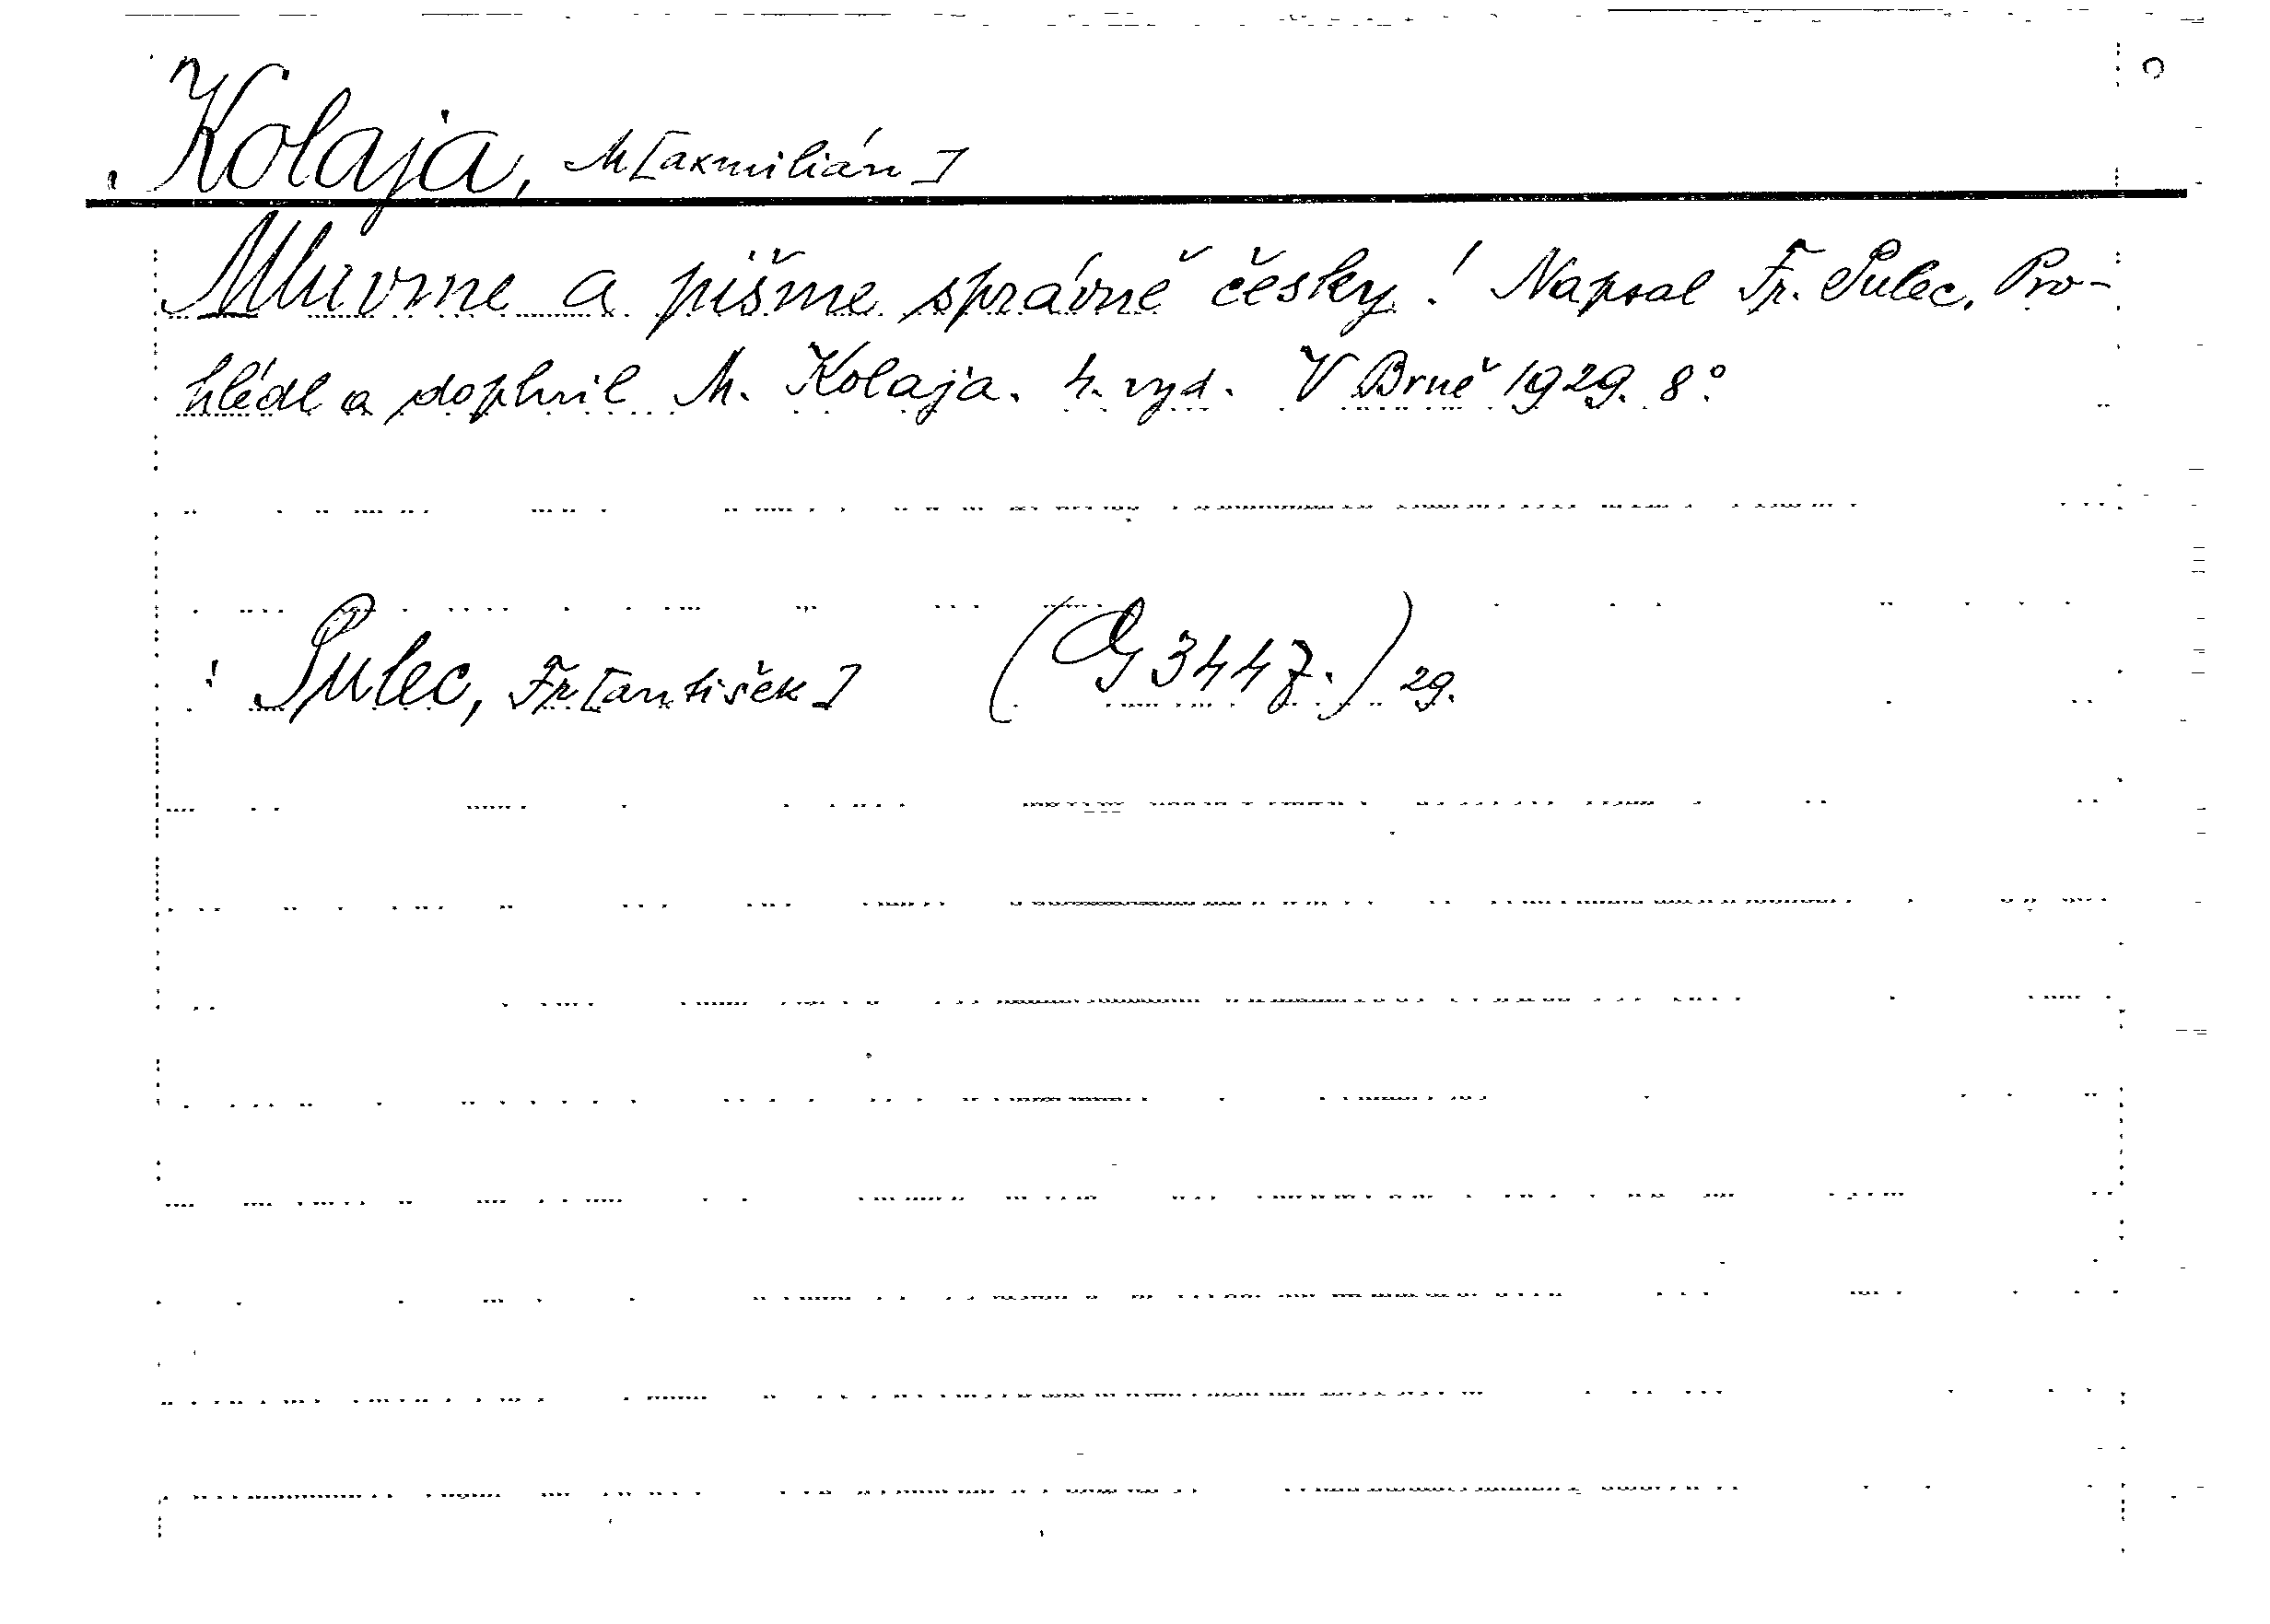 Kolaja, M[axmilián]
Mluvme a pišme správně česky! Napsal Fr. Pulec. Pro-
hlédl a doplnil M. Kolaja. 4. vyd. V Brně 1929. 8°.
Pulec, Fr[antišek] (G 3447.) 29.